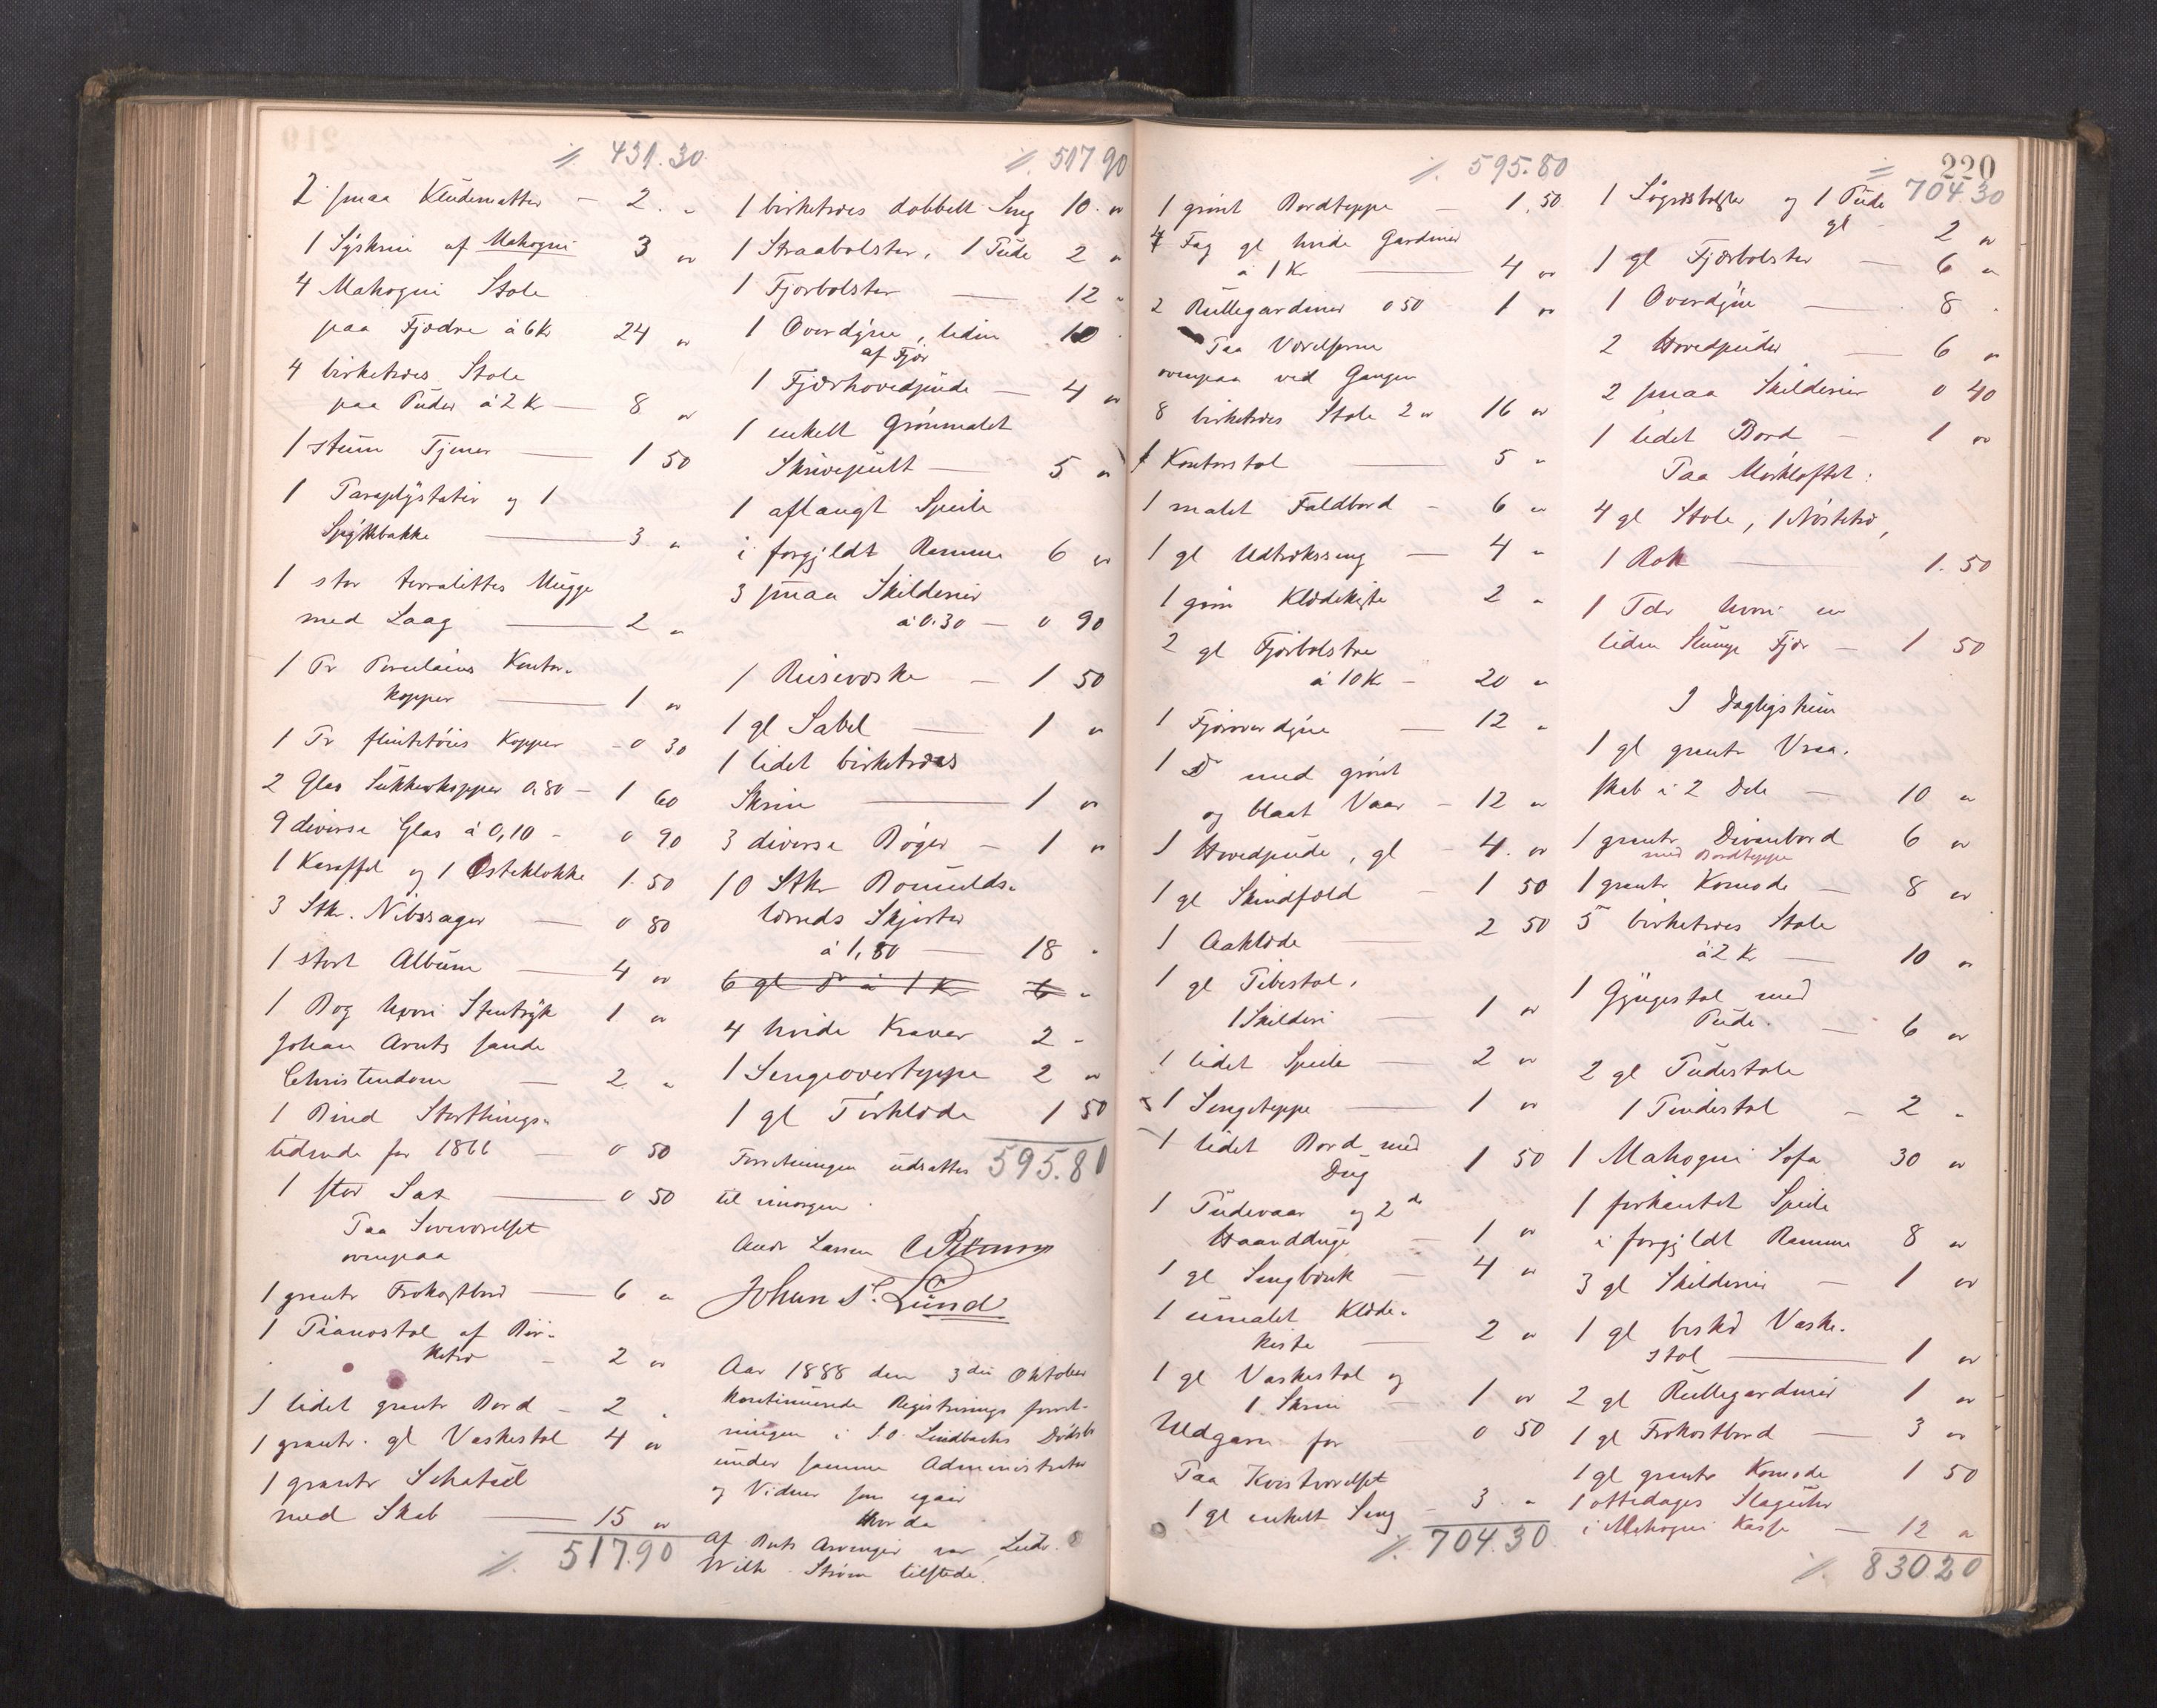 ⁒ 431.30
2 smaa Kludematter – 2. "
1 Syskrin af Mahogni 3 "
4 Mahogni Stole
paa Fjædre à 6 Kr 24 "
4 birketræes Stole
paa Puder à 2 Kr – 8 "
1 stum Tjener – 1 50
1 Paraplystativ og 1
Spyttbakke – 3 "
1 stor terralittes Mugge
med Laag – 2 "
1 Pr Porcelains Kontor-
kopper – 1 "
1 Pr flintetøies Kopper – 0 30
2 Glas Sukkerkopper 0,80 – 1 60
9 diverse Glas à 0,10 – 0 90
1 Karaffel og 1 Osteklokke 1.50
3 Stk. Nibssager – 0 80
1 stort Album – 4 "
1 Bog hvori Stentryk 1 "
Johan Arnts sande
Christendom – 2 "
1 Bind Storthings-
tidende for 1866 – 0 50
1 stor Sax – 0 50
Paa Soveværelset
ovenpaa
1 grantr Frokostbord – 6 "
1 Pianostol af Bir-
ketræ – 2 "
1 lidet grantr Bord – 2 "
1 grantr. gl Vaskestol 4 "
1 grantr Schatul
med Skab – 15 "
⁒ 517.90
⁒ 517 90
1 birketræes dobbelt Seng 10. "
1 Straabolster, 1 Pude 2 "
1 Fjærbolster – 12 "
1 Overdyne, liden 10 "
af Fjær
1 Fjærhovedpude – 4 "
1 enkelt Grønmalet
Skrivepult – 5 "
1 aflangt Speile
i forgyldt Ramme 6 "
3 smaa Skilderier
à 0.30 – 0 90
1 Reisevæske – 1 50
1 gl Sabel – 1 "
1 lidet birketræes
Skrin – 1 "
3 diverse Bøger – 1 "
10 Stkr Bomulds-
lærreds Skjorter
à 1,80 – 18 "
6 gl Do à 1 Kr 6 "
4 hvide Kraver 2 "
1 Sengeovertæppe 2 "
1 gl Tørklæde 1 50
595.80
Forretningen udsattes
til imorgen.
Andr Larsen
Johan S. Lund
Aar 1888 den 3die Oktober
kontinuerede Registrerings forret-
ningen i J. O. Lindbacks Dødsbo
under samme Administrator
og Vidner som igaar
Hvorda
Af Boets Arvinger var Ludv.
Wilh. Strøm tilstede.
⁒ 595.80
1 grønt Bordteppe – 1.50
4 Fag gl hvide Gardiner
à 1 Kr – 4 "
2 Rullegardiner 0 50 1 "
Paa Værelserne
ovenpaa ved Gangen
8 birketræes Stole 2 " 16 "
1 Kontorstol – 5 "
1 malet Foldbord – 6 "
1 gl Udtræksseng – 4 "
1 grøn Klædekiste 2 "
2 gl Fjærbolstre
à 10 K – 20 "
1 Fjæroverdyne – 12 "
1 Do med grønt
og blaat Vaar – 12 "
1 Hovedpude, gl – 4. "
1 gl Skindfæld – 1 50
1 Aaklæde – 2 50
1 gl Pibestol,
1 Skilderi – 1 "
1 lidet Speile – 2 "
1 Sengeteppe – 1 "
1 lidet Bord med
Dug 1 50
1 Pudevaar og 2 do
Haandduge – 1 "
1 gl Sengbænk – 4 "
1 umalet Klæde-
kiste – 2 "
1 gl Vaskestol og
1 Skrin – 1 "
Uldgarn for 0 50
Paa Kvistværelset
1 gl enkelt Seng – 3 "
⁒ 704.30
220
⁒ 704.30
1 Søgræsbolster og 1 Pude
gl – 2 "
1 gl Fjærbolster – 6 "
1 Overdyne – 8 "
2 Hovedpuder – 6 "
2 smaa Skilderier 0 40
1 lidet Bord – 1 "
Paa Mørkloftet:
4 gl Stole, 1 Nøstetræ,
1 Rok – 1.50
1 Tdr hvori en
liden Slump Fjær – 1 50
I Dagligstuen
1 gl grantr Vraa-
skab i 2 Dele – 10 "
1 grantr Divanbord 6 "
med Bordteppe
1 grantr Komode – 8 "
5 birketræes Stole
à 2 Kr – 10 "
1 Gyngestol med
Pude. – 6 "
2 gl Pudestole
1 Pindestol – 2 "
1 Mahogni Sofa 30 "
1 firkantet Speile
i forgyldt Ramme 8 "
3 gl Skilderier – 1 "
1 gl Vaske-
stol – 1 "
2 gl Rullegardiner 1 "
1 gl Frokostbord – 3 "
1 gl grantr Komode 1 50
1 ottedages Slaguhr
i Mahogni Kasse – 12 "
⁒ 830 20